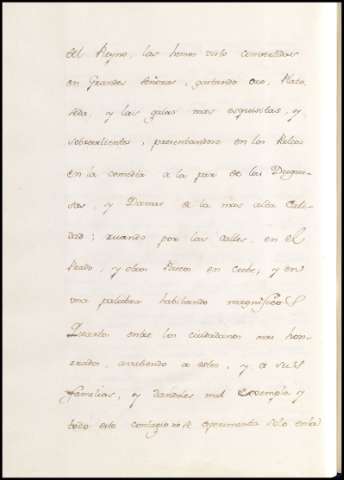 del Reyno, las hemos visto convertidas
en Grandes Señoras, gastando Oro, Plata,
seda, y las galas mas esquisitas, y
sobresalientes, presentandose en los Palcos
en la comedia a la par de las Duque-
sas, y Damas de la mas alta Cali-
dad; ruando por las calles, en el
Prado, y otros Paseos en coche, y en
una palabra habitando magnificos
Quartos entre los ciudadanos mas hon-
rados, arruinando a estos, y a sus
familias, y dandoles mal exemplo y
todo este contagio no se esperimenta solo en la